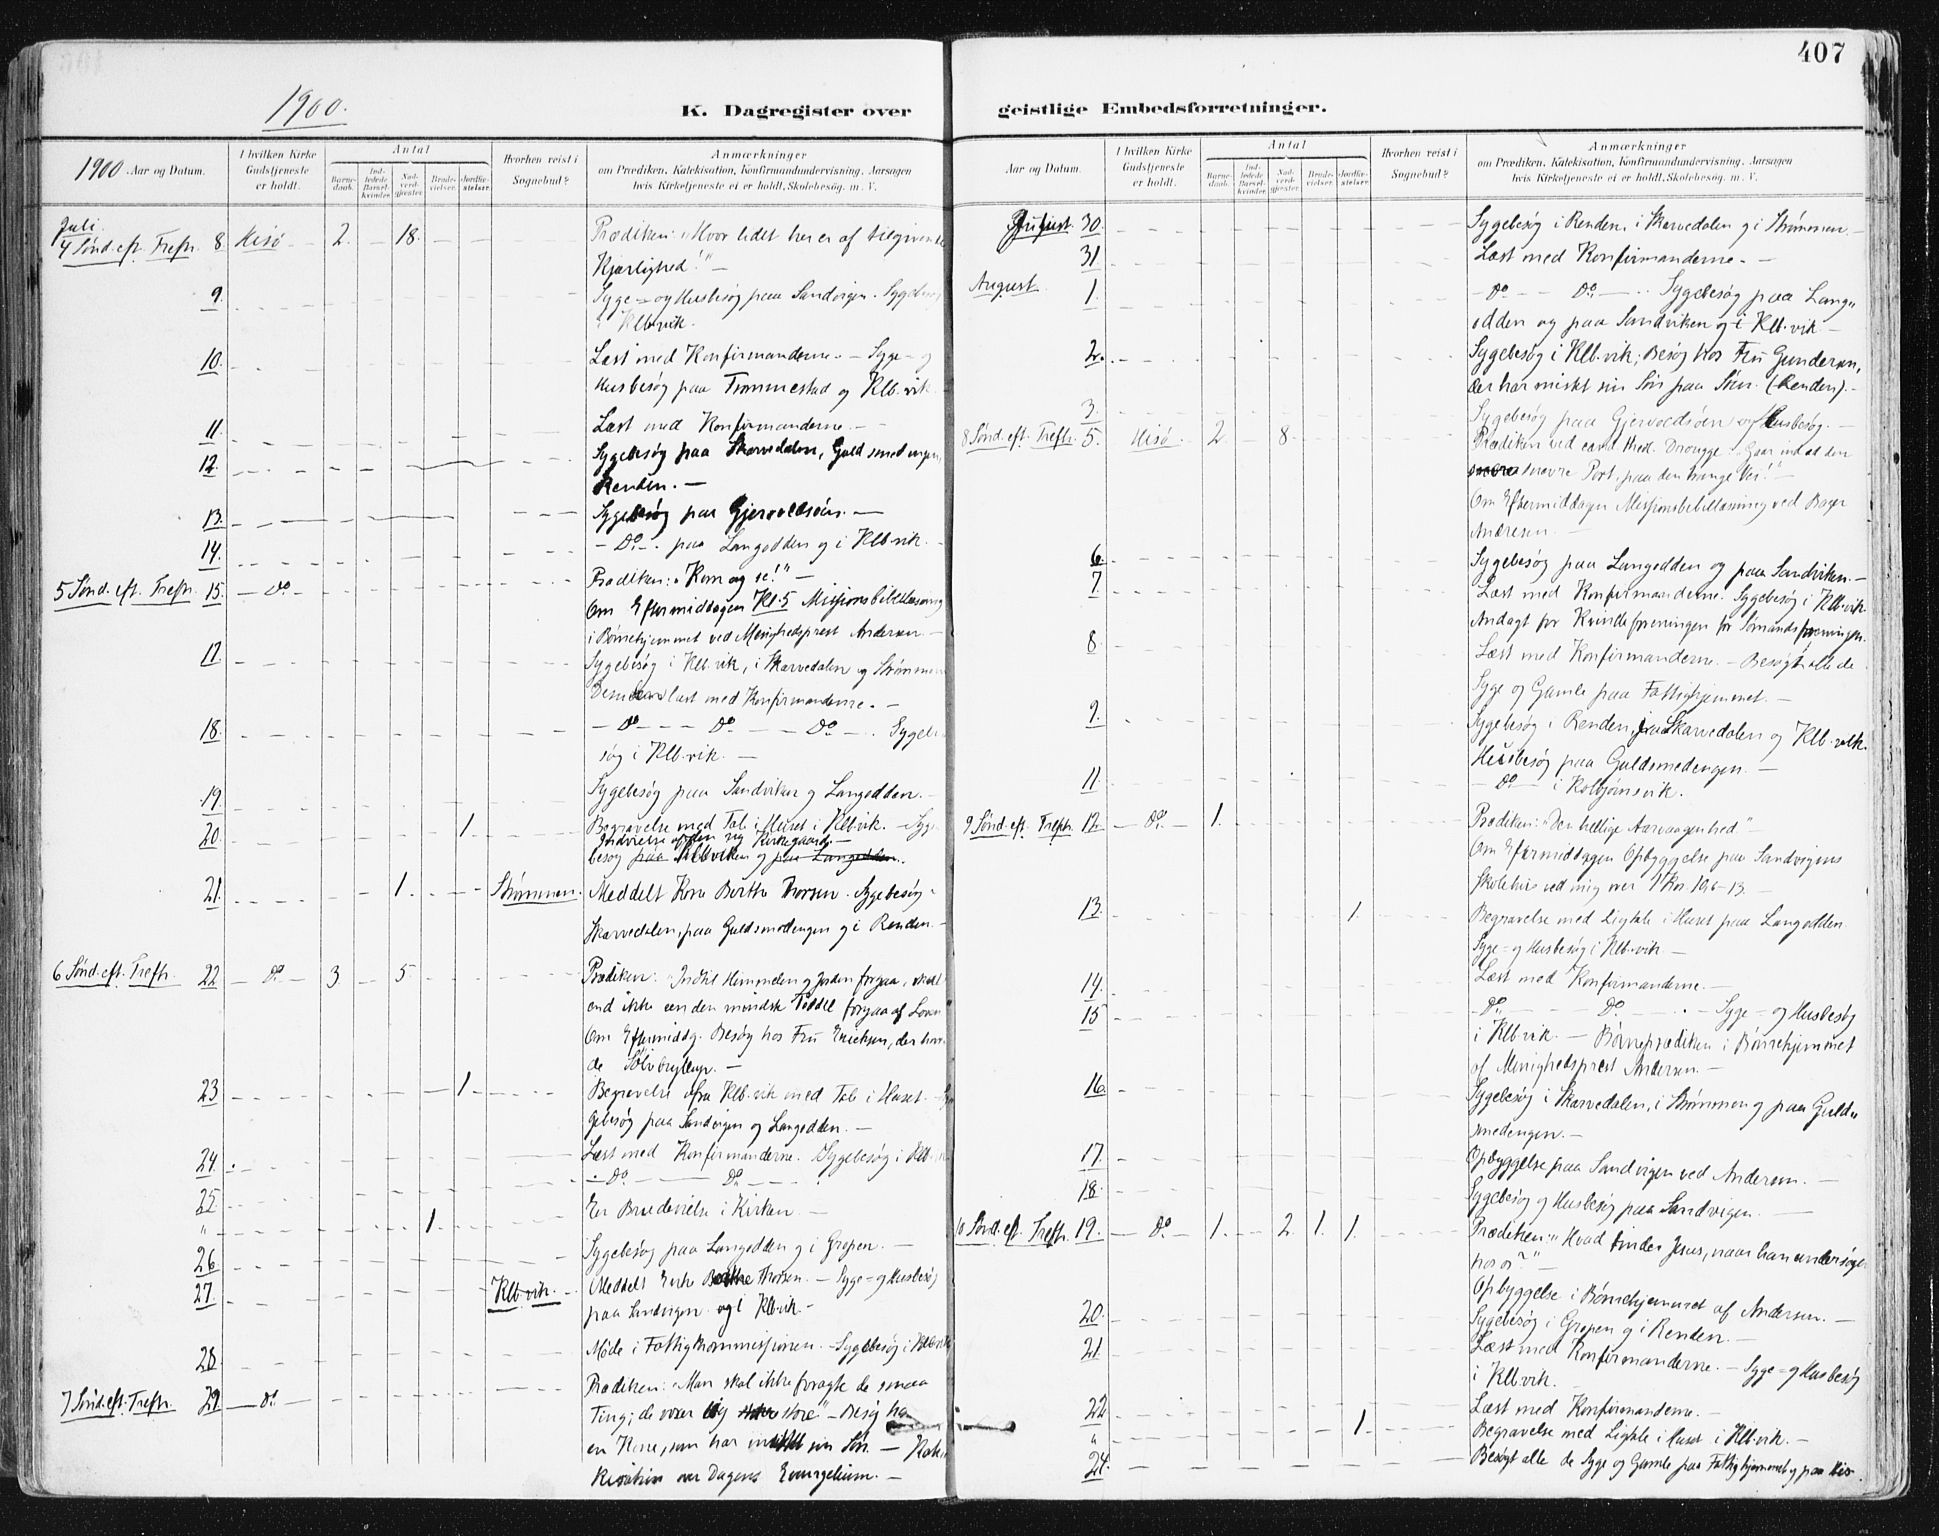 407
1900.
K. Dagregister over geistlige Embedsforretninger.
1900 Aar og Datum.
I hvilken Kirke Gudstjeneste er holdt.
Antal
Barnedaab.
Indledede Barselkvinder.
Nadverdgjester.
Brudevielser.
Jordfæstelser.
Hvorhen reist i Sognebud?
Anmærkninger
om Prædiken, Katekisation, Konfirmandundervisning, Aarsagen
hvis Kirketjeneste ei er holdt, Skolebesøg, m. V.
Juli.
4 Sønd. eft. Trefn. 8 Hisö 2. 18. Prædiken: "Hvor lidet her er af tilgivende
Kjærlighed!" —
9. Syge- og Husbesøg paa Sandvigen. Sygebesøg
i Klb.vik.
10. Læst med Konfirmanderne. — Syge- og
Husbesøg paa Trommestad og Klb.vik.
11. Læst med Konfirmanderne. —
12. Sygebesøg paa Skarvedalen, Guldsmedengen,
Renden. —
13. Sygebesøg paa Gjervoldsöen. —
14. — Do — . paa Langodden og i Klb.vik.
5 Sønd. eft. Trefn. 15. — Do — Prædiken: "Kom og se!" —
Om Eftermiddagen Kl. 5 Missionsbibellæsning
i Børnehjemmet ved Menighedsprest Andersen —
17. Sygebesøg i Klb.vik, i Skarvedalen og Strømmen
læst med Konfirmanderne. —
18. — Do — — Do — — Do — . Sygebe
søg i Klb.vik. —
19. Sygebesøg paa Sandviken og Langodden. —
20. 1. Begravelse med Tale i Huset i Klb.vik. — Syge
Indvielse af den ny Kirkegaard. —
besøg paa Klbviken og paa Langodden.
21. 1. Strømmen. Meddelt Kone Berthe Thorsen. Sygebesøg
Skarvedalen, paa Guldsmedengen og i Renden. —
6 Sønd. eft. Trefn. 22 — Do — 3. 5. Prædiken: "Indtil Himmelen og Jorden forgaa, skal
end ikke een den mindste Tøddel forgaa af Loven
Om Eftermiddg. Besøg hos Fru Ericksen, der hav
de Sölvbryllup. —
23 1. Begravelse fra Klb.vik med Tale i Huset. Sy
gebesøg paa Sandvigen og Langodden. —
24. Læst med Konfirmanderne. Sygebesøg i Klb.vik
25 — Do — — Do —
" 1. En Brudevielse i Kirken. —
26 Sygebesøg paa Langodden og i Gropen. —
27. Klb.vik. Meddelt Enke Berthe Thorsen. — Syge- og Husbesøg
paa Sandvigen og i Klb.vik —
28 Møde i Fattigkommissionen. Sygebesøg i Klb.vik
7 Sønd. eft. Trefn. 29 — Do Prædiken: "Man skal ikke foragte de smaa
Ting; de store" — Besøg ho
en Kone, som har mistet sin Søn. — Kate
kisation over Dagens Evangelium. —
Aar og Datum.
I hvilken Kirke Gudstjeneste er holdt.
Antal
Barnedaab.
Indledede Barselkvinder.
Nadverdgjester.
Brudevielser.
Jordfæstelser.
Hvorhen reist i Sognebud?
Anmærkninger
om Prædiken, Katekisation, Konfirmandundervisning, Aarsagen
hvis Kirketjeneste ei er holdt, Skolebesøg, m. V.
30. Sygebesøg i Renden, i Skarvedalen og i Strømmen.
31 Læst med Konfirmanderne. —
August. 1. — Do — — Do — . Sygebesøg paa Lang
odden og paa Sandviken og i Klb.vik —
2. Sygebesøg i Klb.vik; Besøg hos Fru Gundersen,
der har mistet sin Søn paa Søen. (Renden). —
3. Sygebesøg paa Gjervoldsöen og Husbesøg. —
8 Sønd. eft. Trefn. 5. Hisö. 2. 8. Prædiken ved cand. theol. Brougge: "Gaar ind ad den
snevre Port, paa den trange Vei!" —
Om Eftermiddagen Missionsbibellæsning ved
Andresen —
6. Sygebesøg paa Langodden og paa Sandviken. —
7. Læst med Konfirmanderne. Sygebesøg i Klb.vik
Andagt for Kvindeforeningen for Sømandsforeningen.
8. Læst med Konfirmanderne. — Besøgt alle de
Syge og Gamle paa Fattighjemmet. —
9. Sygebesøg i Renden, paa Skarvedalen og Klb.vik.
Husbesøg paa Guldsmedengen. —
11. — Do — i Kolbjönsvik.
9 Sønd. eft. Trefn. 12 — Do. — 1. Prædiken: "Den hellige Aarvaagenhed"
Om Eftermiddagen Opbyggelse paa Sandvigens
Skolehus ved mig over 1 Kor 10,6-13. —
13. 1. Begravelse med Ligtale i Huset paa Langodden.
Syge- og Husbesøg i Klb.vik —
14. Læst med Konfirmanderne. —
15 — Do. — — Do. — Syge- og Husbesøg
i Klb.vik. — Børneprædiken i Børnehjemmet
af Menighedsprest Andersen. —
16. Sygebesøg i Skarvedalen, i Strømmen og paa Guld
smedengen. —
17. Opbyggelse paa Sandvigen ved Andersen. —
18. Sygebesøg og Husbesøg paa Sandvigen. —
10 Sønd. eft. Trefn. 19. — Do. — 1. 2. 1. 1. Prædiken: "Hvad finder Jesus, naar han undersøger
hos os?" —
Opbyggelse i Børnehjemmet af Andersen. —
20. Sygebesøg i Gropen og i Renden. —
21 Læst med Konfirmanderne. — Syge- og Husbesøg
i Klb.vik.
22 Læst med Konfirmanderne. —
" 1. Begravelse med Ligtale i Huset i Klb.vik. —
24. Besøgt alle de Syge og Gamle paa Fattighjemmet og paa His.